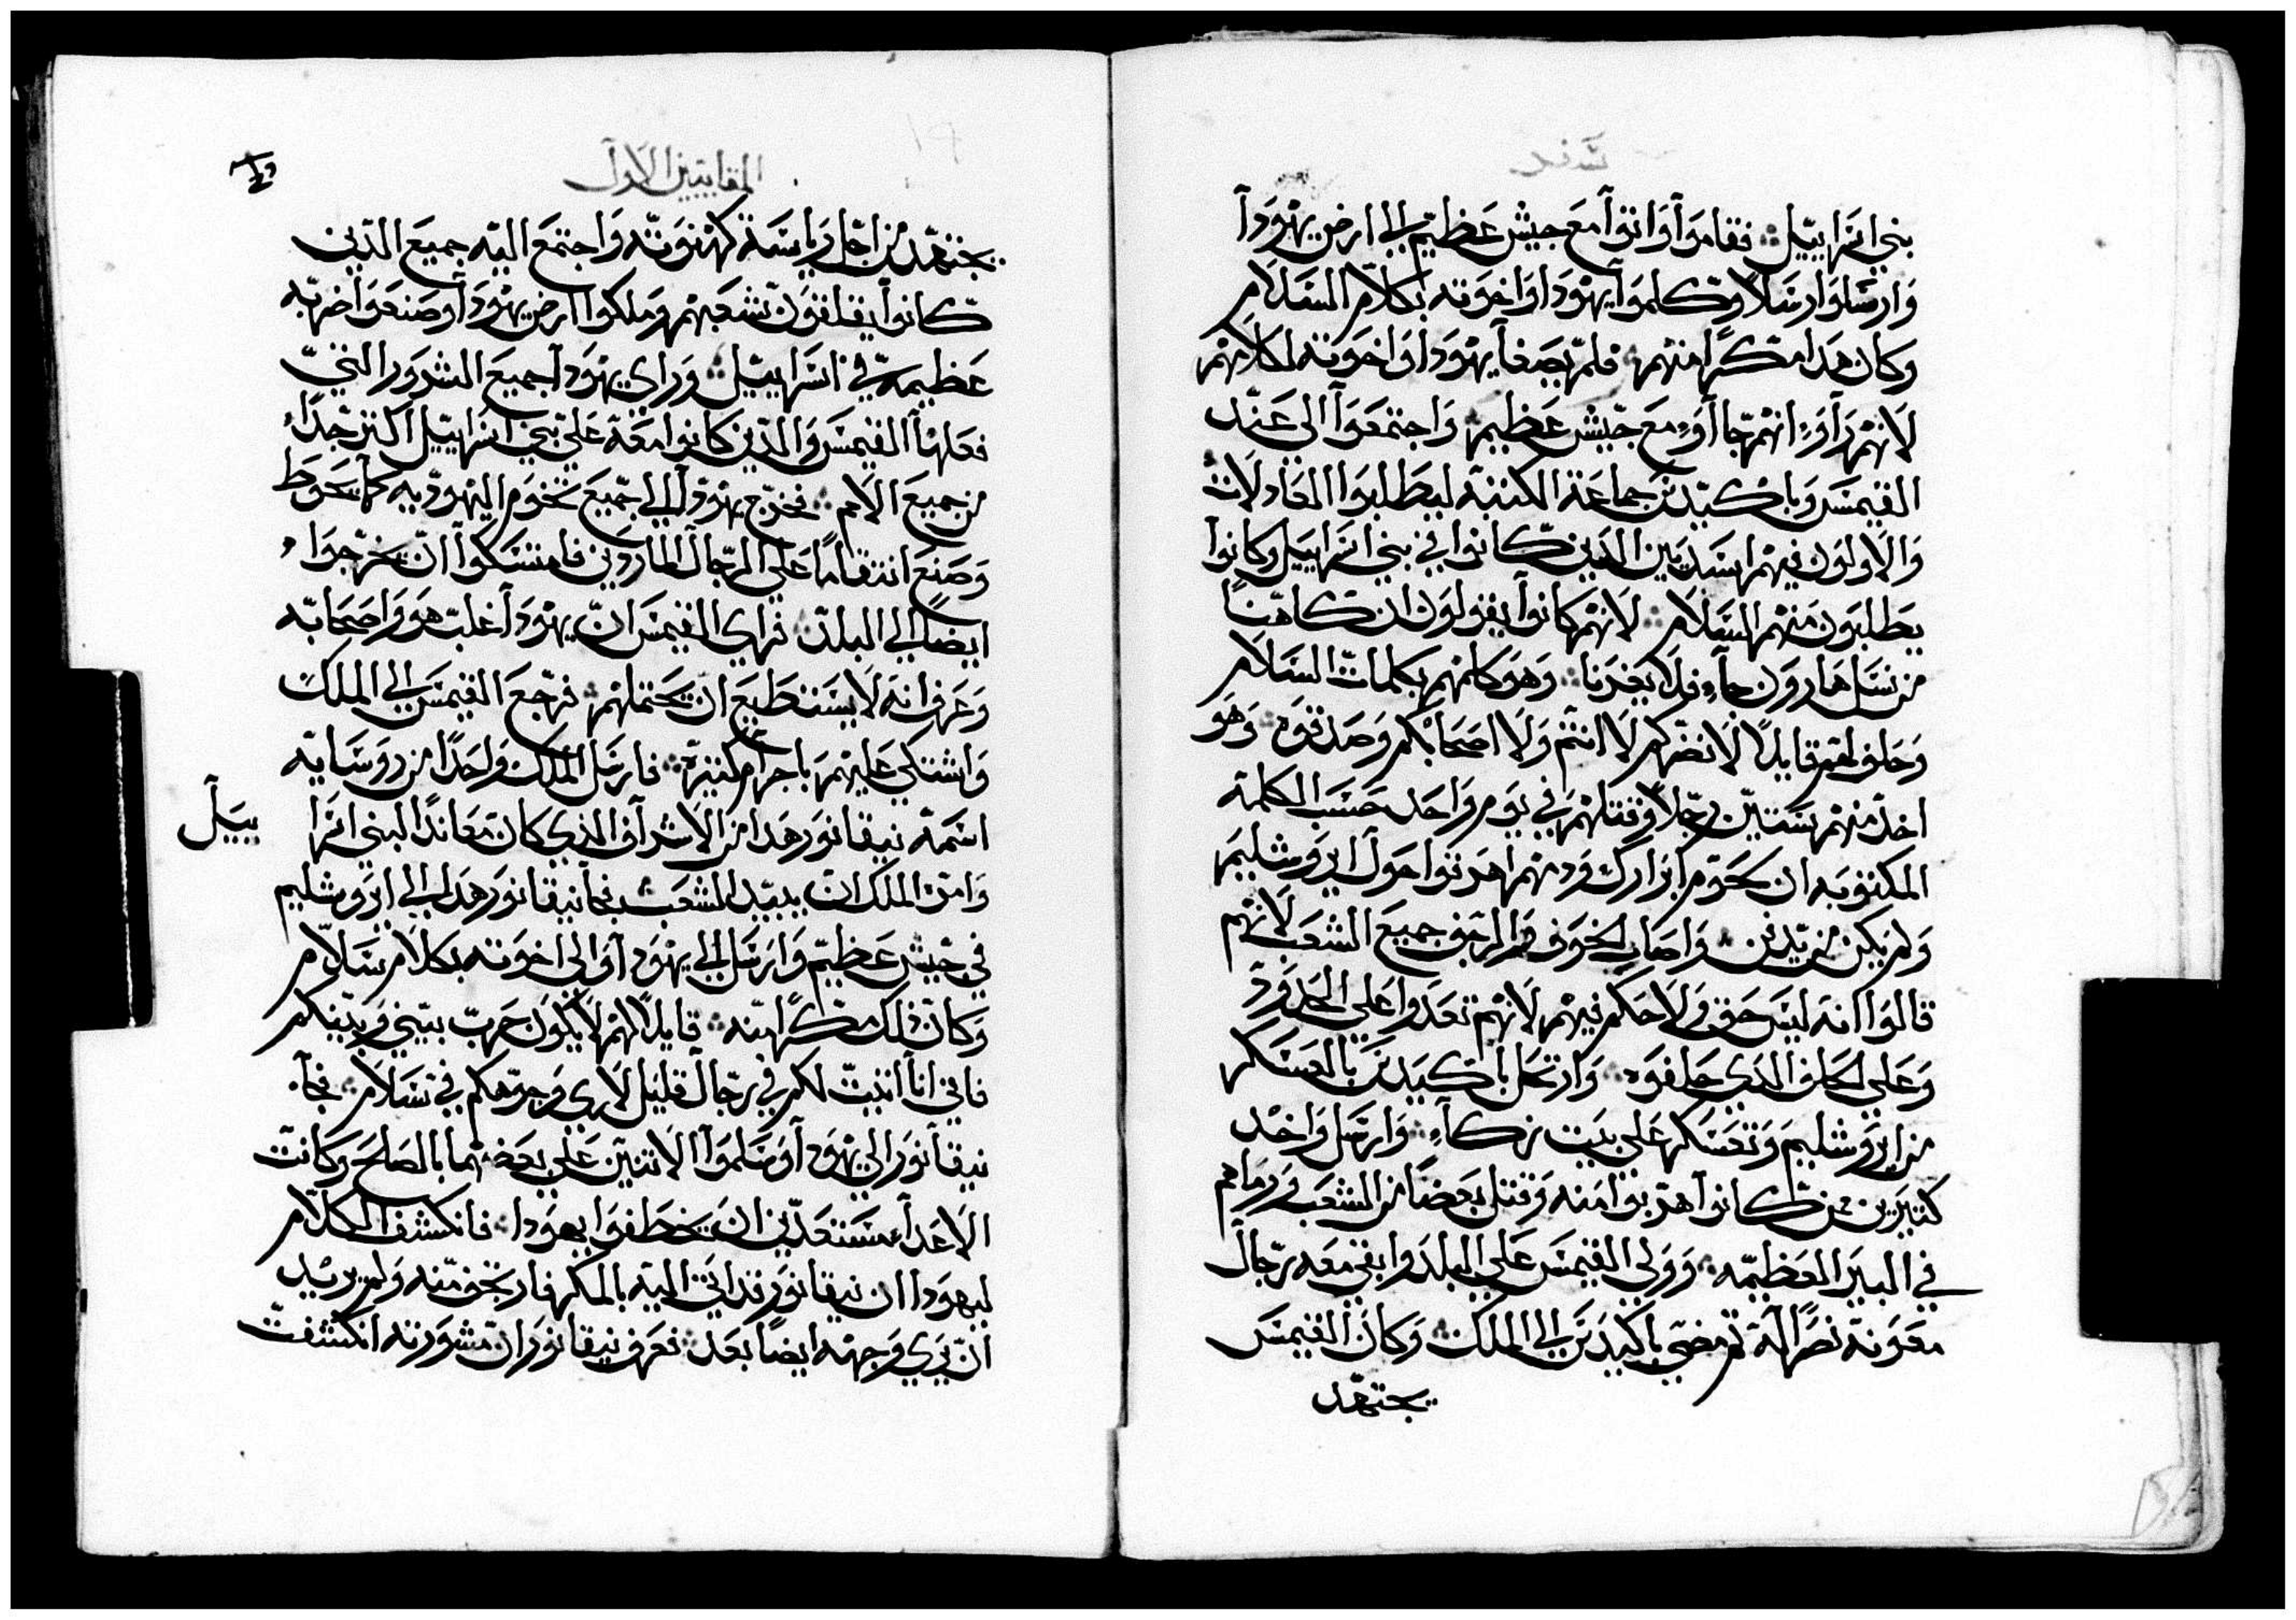 شفر
بني اسراييل فقاموا واتوا مع جيش عظيم الي ارض يهودا
وارسلوا رسلا وكلموا يهودا واخوته بكلام السلام
وكان هدا مكرا منهم فلم يصغا يهودا واخوته لكلامهم
لانهم راوء انهم جاأوء مع جيش عظيم واجتمعوا الي عند
القيمس وباكيدس جماعة الكتبه ليطلبوا العادلات
والاولون فيهم اسديين الدين كانوا في بني اسراييل وكانوا
يطلبون منهم السلام لانهم كانوا يقولون ان كاهنا
من نسل هارون جاء فلا يغدرنا وهو كلمهم بكلمات السلام
وحلف لهم قايلا لا نضركم لا انتم ولا اصحابكم وصدقوه وهو
اخد منهم ستين رجلا وقتلهم في يوم واحد حسب الكلمة
المكتوبه ان لحوم ابرارك ودمهم اهرقوا حول ايروشليم
ولم يكن من يدفن واصاب الخوف والرجف جميع الشعب لانهم
قالوا انه ليس حق ولا حكم فيهم لانهم تعدوا علي الحدود
وعلي الحلف الدي حلفوه وارتحل باكيدس بالعسكر
من ايروشليم وتعسكر علي بيت زكاء وارسل واخد
كتيرين ممن كانوا هربوا منه وقتل بعضا من الشعب ورماهم
في البير العظيمه وولي القيمس علي البلد وابقي معه رجال
معونة نصرا له ثم مضي باكيدس الي الملك وكان القيمس
يجتهد
المقابيين الاول
يجتهد من اجل رياسة كهنوته واجتمع اليه جميع الدين
كانوا يقلقون شعبهم وملكوا ارض يهودا وصنعوا ضربه
عظيمه في اسراييل وراي يهودا جميع الشرور التي
فعلها القيمس والدين كانوا معة علي بني اسراييل اكتر جدا
من جميع الامم فخرج يهودا الي جميع تخوم اليهوديه كما يحوط
وصنع انتقاما علي الرجال الماردين فامتسكوا ان يخرجوا
ايضا الي البلد فراي القيمس ان يهودا غلب هو واصحابه
وعرف انه لا يستطيع ان يحتملهم فرجع القيمس الي الملك
واشتكي عليهم باجرام كتيرة فارسل الملك واحدا من روسايه
اسمه نيقانور هدا من الاشراف الذي كان معاندا لبني اسرا
ييل
وامره الملك ان يبيد الشعب فجا نيقانور هدا الي ايروشليم
في جيش عظيم وارسل الي يهودا والي اخوته بكلام سلام
وكان ذلك مكرا منه قايلا لهم لا يكون حرب بيني وبينكم
فاني انا اتيت لكم في رجال قليل لاري وجوهكم في سلام فجاء
نيقانور الي يهودا وسلموا الاتنين علي بعضهما بالصلح وكانت
الاعداء مستعدين ان يخطفوا يهودا فانكشف الكلام
ليهودا ان نيقانور قد اتي اليه بالمكر فارتجف منه ولم يريد
ان يري وجهه ايضا بعد فعرف نيقانور ان مشورته انكشفت